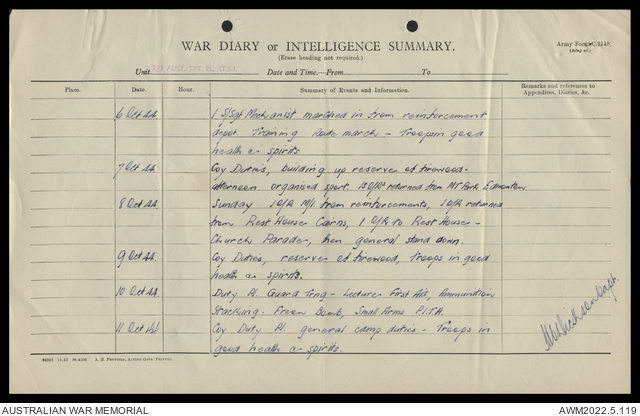 WAR DIARY or INTELLIGENCE SUMMARY.
(Erase heading not required.)
Army Form
Unit AUST. TPT. PL. Date and Time—From To
Place. Date. Hour. Summary of Events and Information. Remarks and references to Appendices, Diaries, &c.
6 Oct 44 1 S/Sgt Mechanist marched in from reinforcement
depot. Training Route march - Troops in good
health & spirits
7 Oct 44 Coy Duties, building up reserve of firewood.
afternoon organised sport. 13 O/Rs returned from MT Park Edmonton
8 Oct 44 Sunday 1 O/R M/I from reinforcements, 1 O/R returned
from Rest House Cairns, 1 O/R to Rest House -
Church Parade, then general stand down.
9 Oct 44 Coy Duties, reserve of firewood, Troops in good
health & spirits.
10 Oct 44 Duty Pl. Guard Trng - Lecture First Aid, Ammunition
Stacking. Bomb, Small Arms P.I.T.A.
11 Oct 44 Coy Duty Pl. general camp duties - Troops in
good health & spirits.
Capt.
AUSTRALIAN WAR MEMORIAL AWM2022.5.119